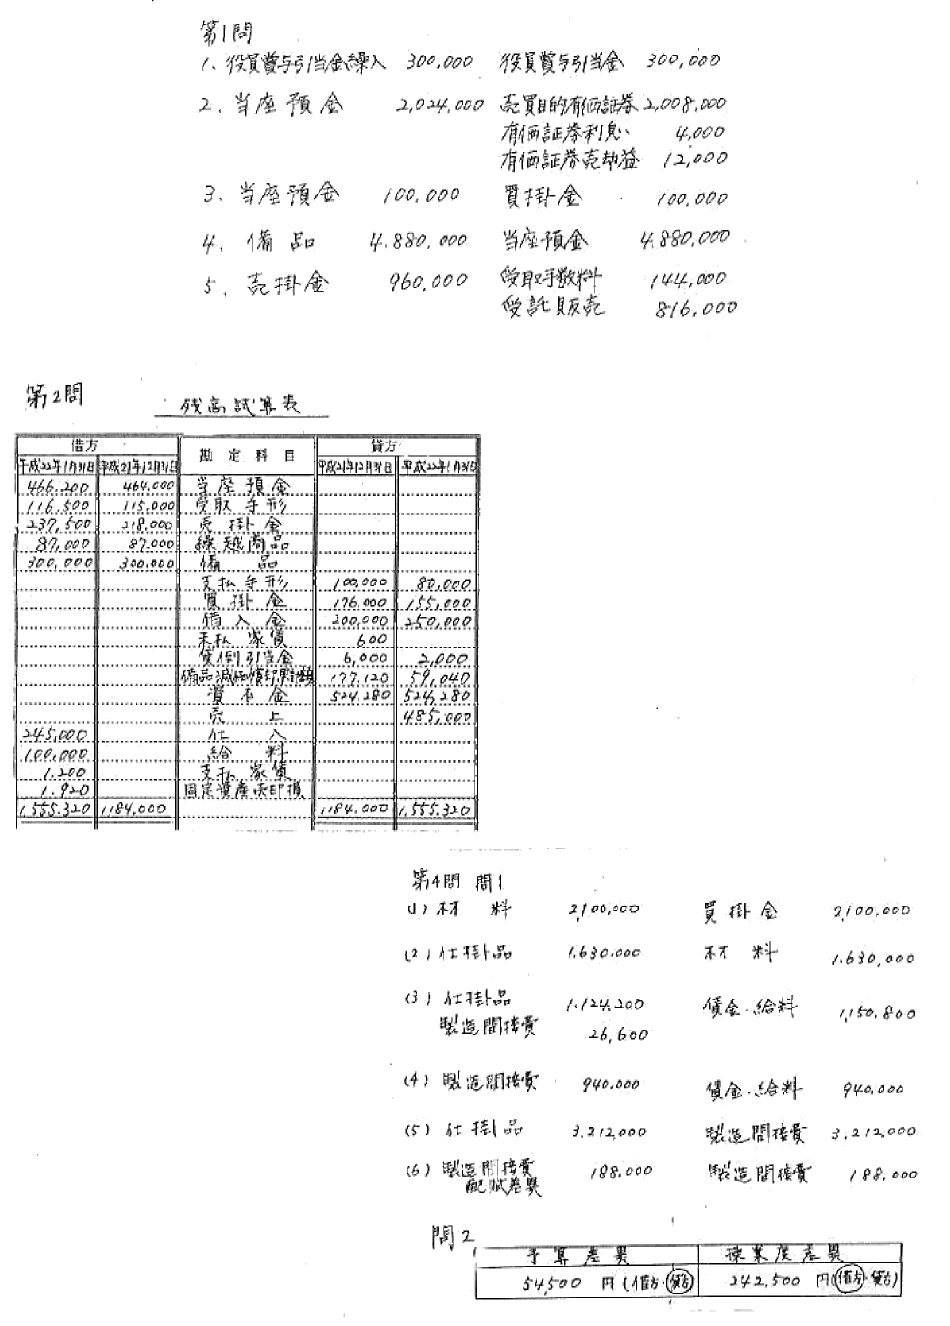 第1問
1、役員賞与引当金繰入 300,000 役員賞与引当金 300,000
2、当座預金 2,024,000 売買目的有価証券 2,008,000
有価証券利息 4,000
有価証券売却益 12,000
3、当座預金 100,000 買掛金 100,000
4、備品 4.880,000 当座預金 4.880,000
5、売掛金 960,000 受取手数料 144,000
受託販売 816,000
第2問 残高試算表
借方 勘定科目 貸方
平成22年1月31日 平成21年12月31日 平成21年12月31日 平成22年1月31日
466.200 464,000 当座預金
116,500 115,000 受取手形
237,500 218,000 売掛金
87,000 87,000 繰越商品
300,000 300,000 備品
支払手形 100,000 80,000
買掛金 176,000 155,000
借入金 200,000 250,000
未払家賃 600
貸倒引当金 6,000 2,000
備品減価償却累計額 177,120 59,040
資本金 524,280 524,280
売上 485,000
245,000 仕入
100,000 給料
1.200 支払家賃
1.920 固定資産売却損
1,555.320 1184,000 1184,000 1,555,320
第4問 問1
(1) 材料 2,100,000 買掛金 2,100,000
(2) 仕掛品 1.630.000 材料 1.630,000
(3) 仕掛品 1.124.200 賃金・給料 1,150.800
製造間接費 26,600
(4) 製造間接費 940,000 賃金・給料 940,000
(5) 仕掛品 3.212,000 製造間接費 3,212,000
(6) 製造間接費 188,000 製造間接費 188,000
配賦差異
問2
予算差異 操業度差異
54,500 円(借方・貸方) 242,500 円(借方・貸方)